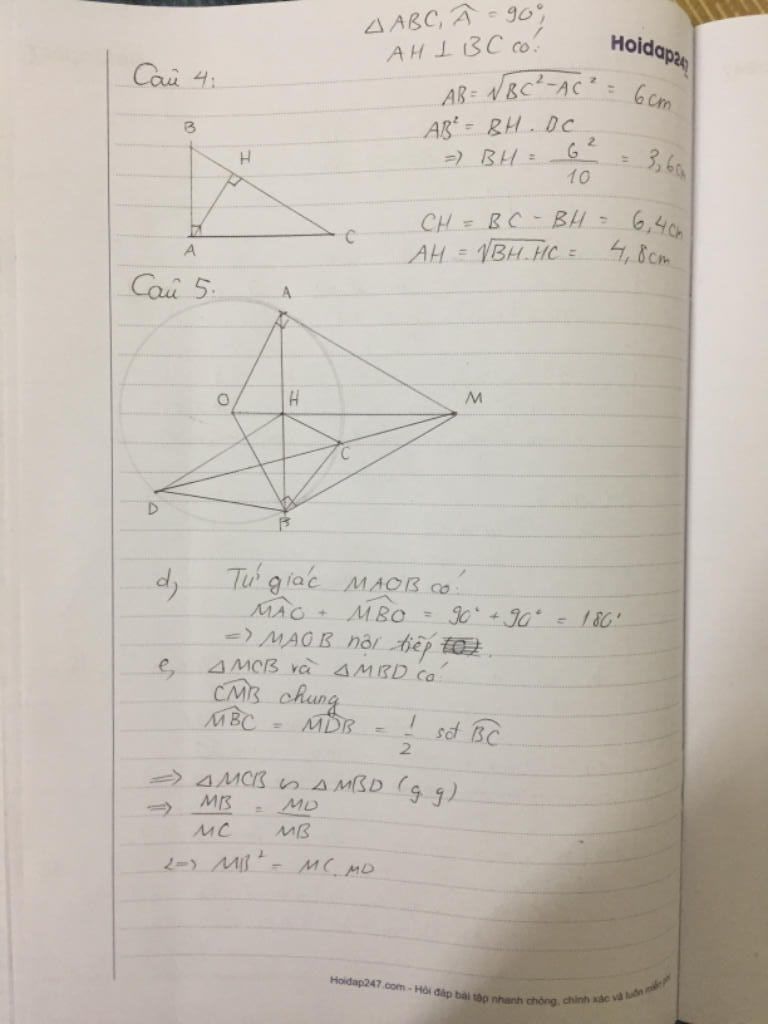 △ABC, Â = 90°,
AH ⊥ BC có:
Hoidap247
Câu 4:
AB = √BC² - AC² = 6cm
AB² = BH . BC
=> BH = 6²/10 = 3,6cm
B
H
A
C
CH = BC - BH = 6,4cm
AH = √BH.HC = 4,8cm
Câu 5.
A
O
H
M
C
D
B
d, Tứ giác MAOB có:
M̂AO + M̂BO = 90° + 90° = 180°
=> MAOB nội tiếp
e, △MCB và △MBD có
ĈMB chung
M̂BC = M̂DB = 1/2 sđ B̂C
=> △MCB ∽ △MBD (g.g)
=> MB/MC = MD/MB
<=> MB² = MC.MD
Hoidap247.com - Hỏi đáp bài tập nhanh chóng, chính xác và luôn miễn phí